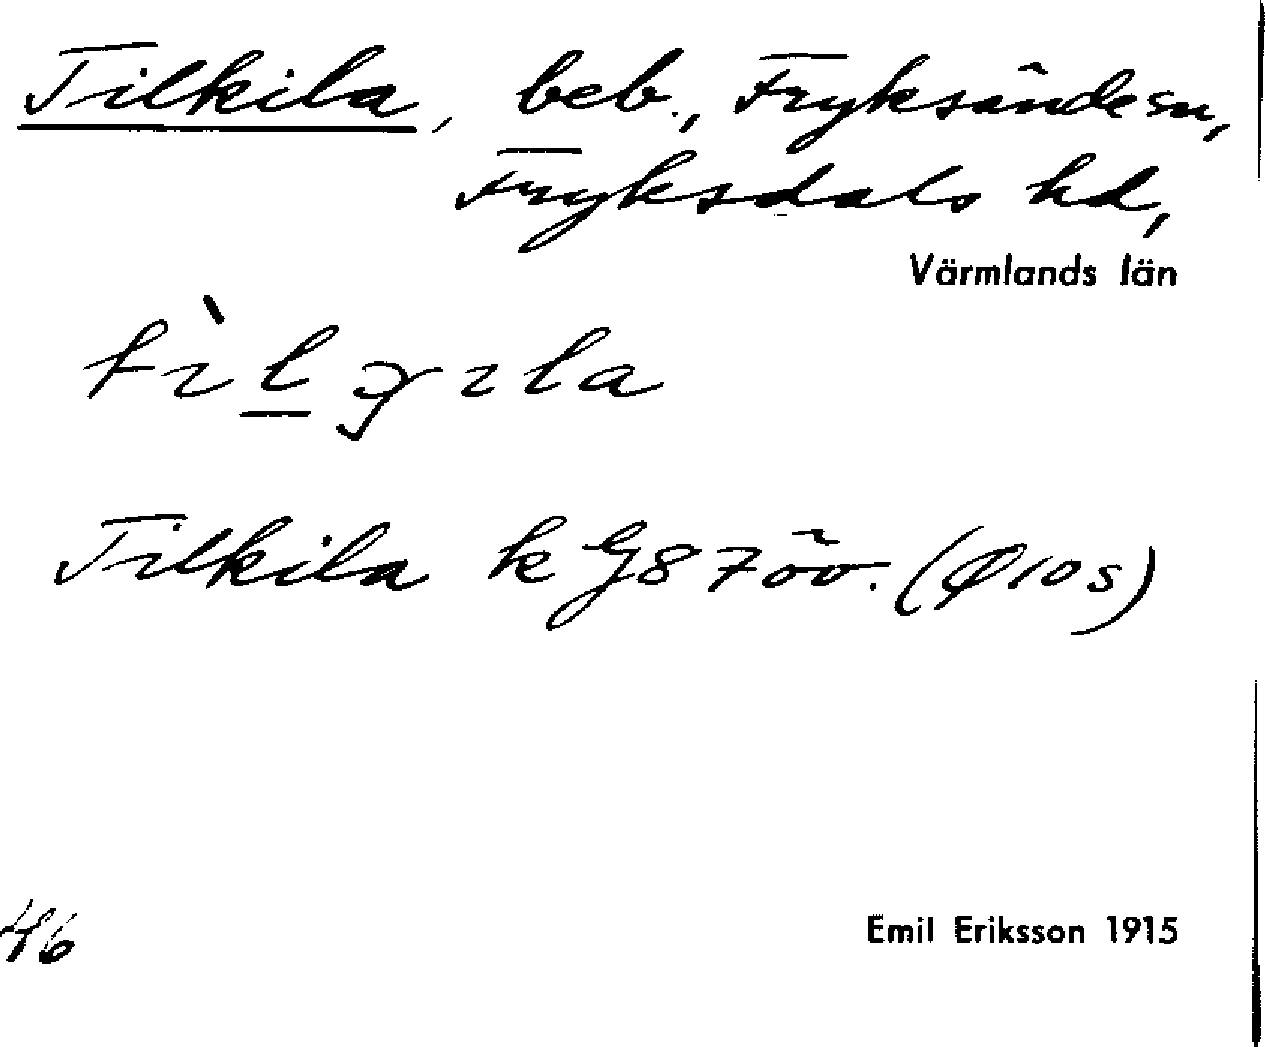 Tilkila, beb., Fryksände sn,
Fryksdals hd,
Värmlands län
Tilkila k G87öv. (Ø10s)
46
Emil Eriksson 1915